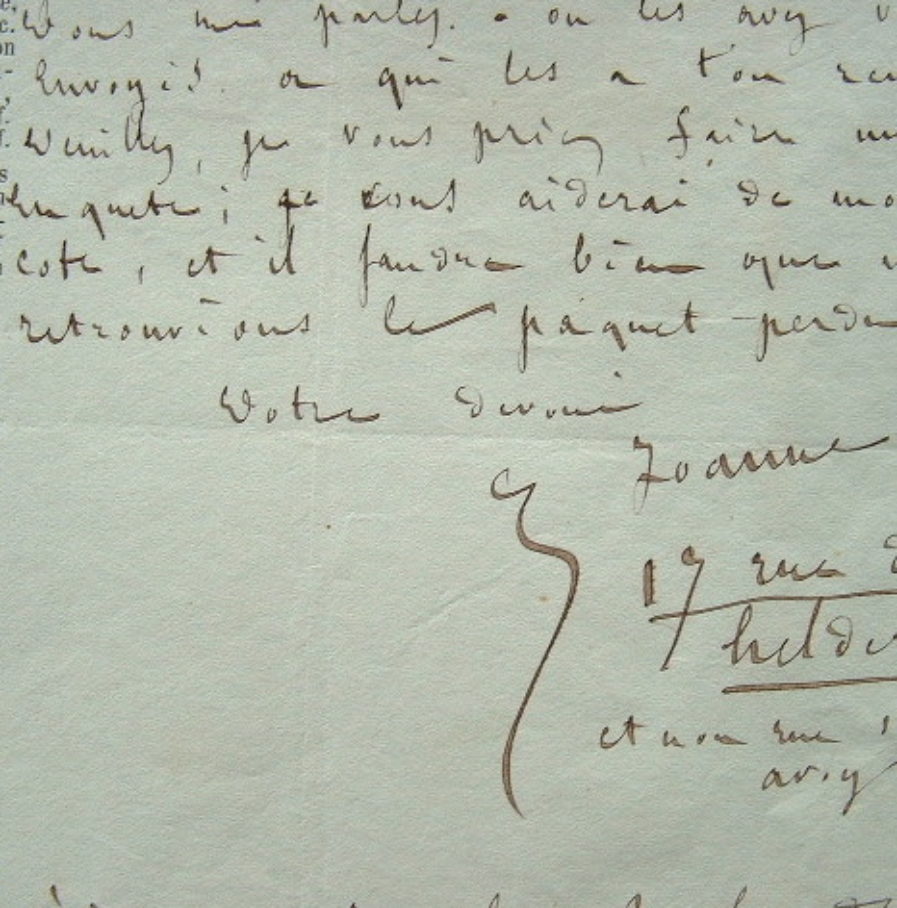 vous me parlez. ou les avez
Envoyés. ou qui les a t'on
Veuillez, je vous prie, faire
Enquete; je vous aiderai de
cote, et il faudra bien que
retrouvions le paquet perdu
Votre devoué
Joanne
17 rue
helder
et non rue
avez